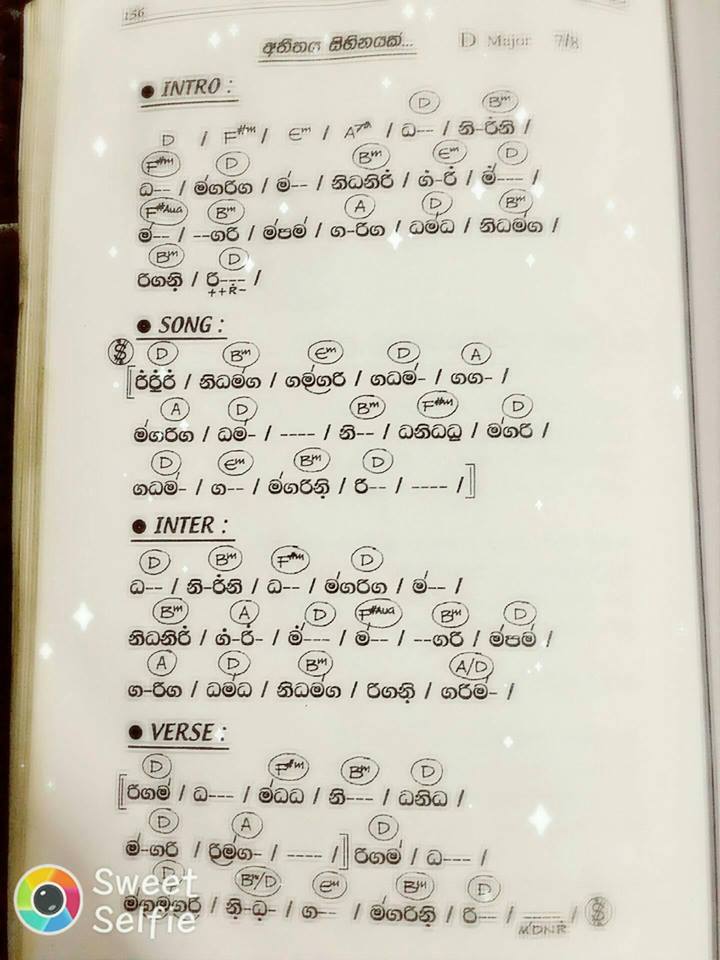 156
අතීතය සිහිනයක්... D Major 7/8
● INTRO :
D Bm
D / F#m / Em / A7th / ධ--- / නි-රි්නි /
F#m D Bm Em D
ධ-- / ම්ගරිග / ම්-- / නිධනිරි් / ග්-රි් / ම්--- /
F#Aug Bm A D Bm
ම්-- / --ගරි / ම්පම් / ග-රිග / ධම්ධ / නිධම්ග /
Bm D
රිගනි̣ / රි--- /
++Ṙ-
● SONG :
D Bm Em D A
[රි්රි්රි් / නිධම්ග / ගම්ගරි / ගධම්- / ගග- /
A D Bm F#m D
ම්ගරිග / ධම්- / ---- / නි-- / ධනිධධ / ම්ගරි /
D Em Bm D
ගධම්- / ග-- / ම්ගරිනි̣ / රි-- / ---- /]
● INTER :
D Bm F#m D
ධ-- / නි-රි්නි / ධ-- / ම්ගරිග / ම්-- /
Bm A D F#Aug Bm D
නිධනිරි් / ග්-රි්- / ම්--- / ම්-- / --ගරි / ම්පම් /
A D Bm A/D
ග-රිග / ධම්ධ / නිධම්ග / රිගනි̣ / ගරිම්- /
● VERSE :
D F#m Bm D
[රිගම් / ධ--- / ම්ධධ / නි--- / ධනිධ /
D A D
ම්-ගරි / රිම්ග- / ---- /] රිගම් / ධ--- /
D Bm/D Em Bm D
ම්ගම්ගරි / නි̣-ධ̣- / ග--- / ම්ගරිනි̣ / රි--- / ---- /
M'DNṘ
Sweet
Selfie